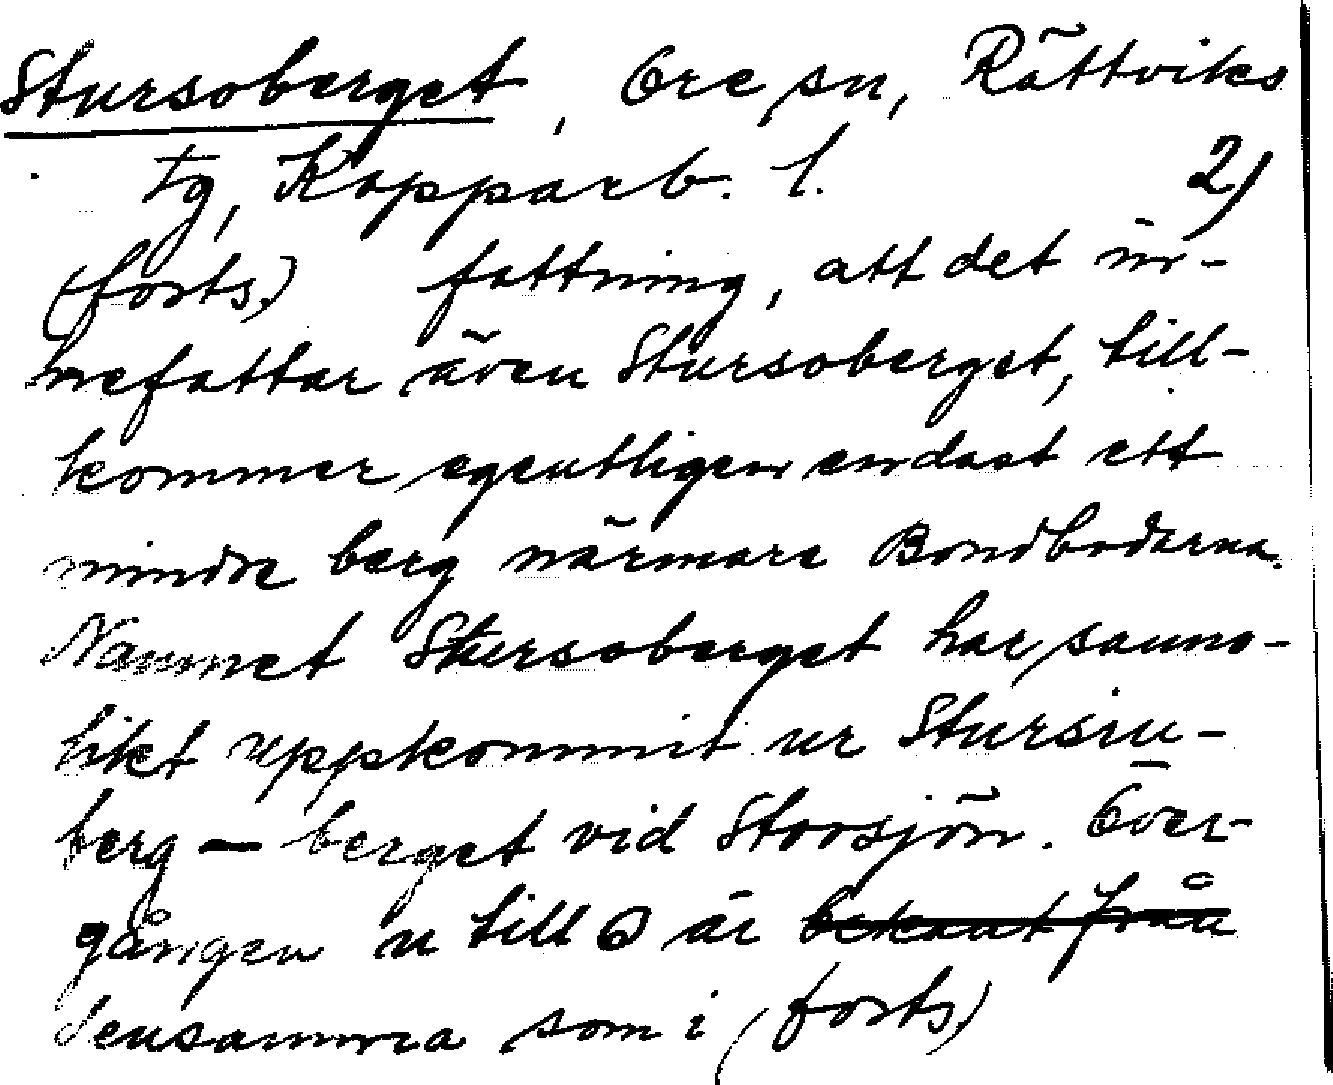 Stursoberget, Ore sn, Rättviks
tg, Kopparb. l. 2)
(forts.) fattning, att det in-
nefattar även Stursoberget, till-
kommer egentligen endast ett
mindre berg närmare Bondbodarna.
Namnet Stursoberget har sanno-
likt uppkommit ur Stursiu-
berg – berget vid Storsjön. Över-
gången u till o är bekant från
densamma som i (forts)